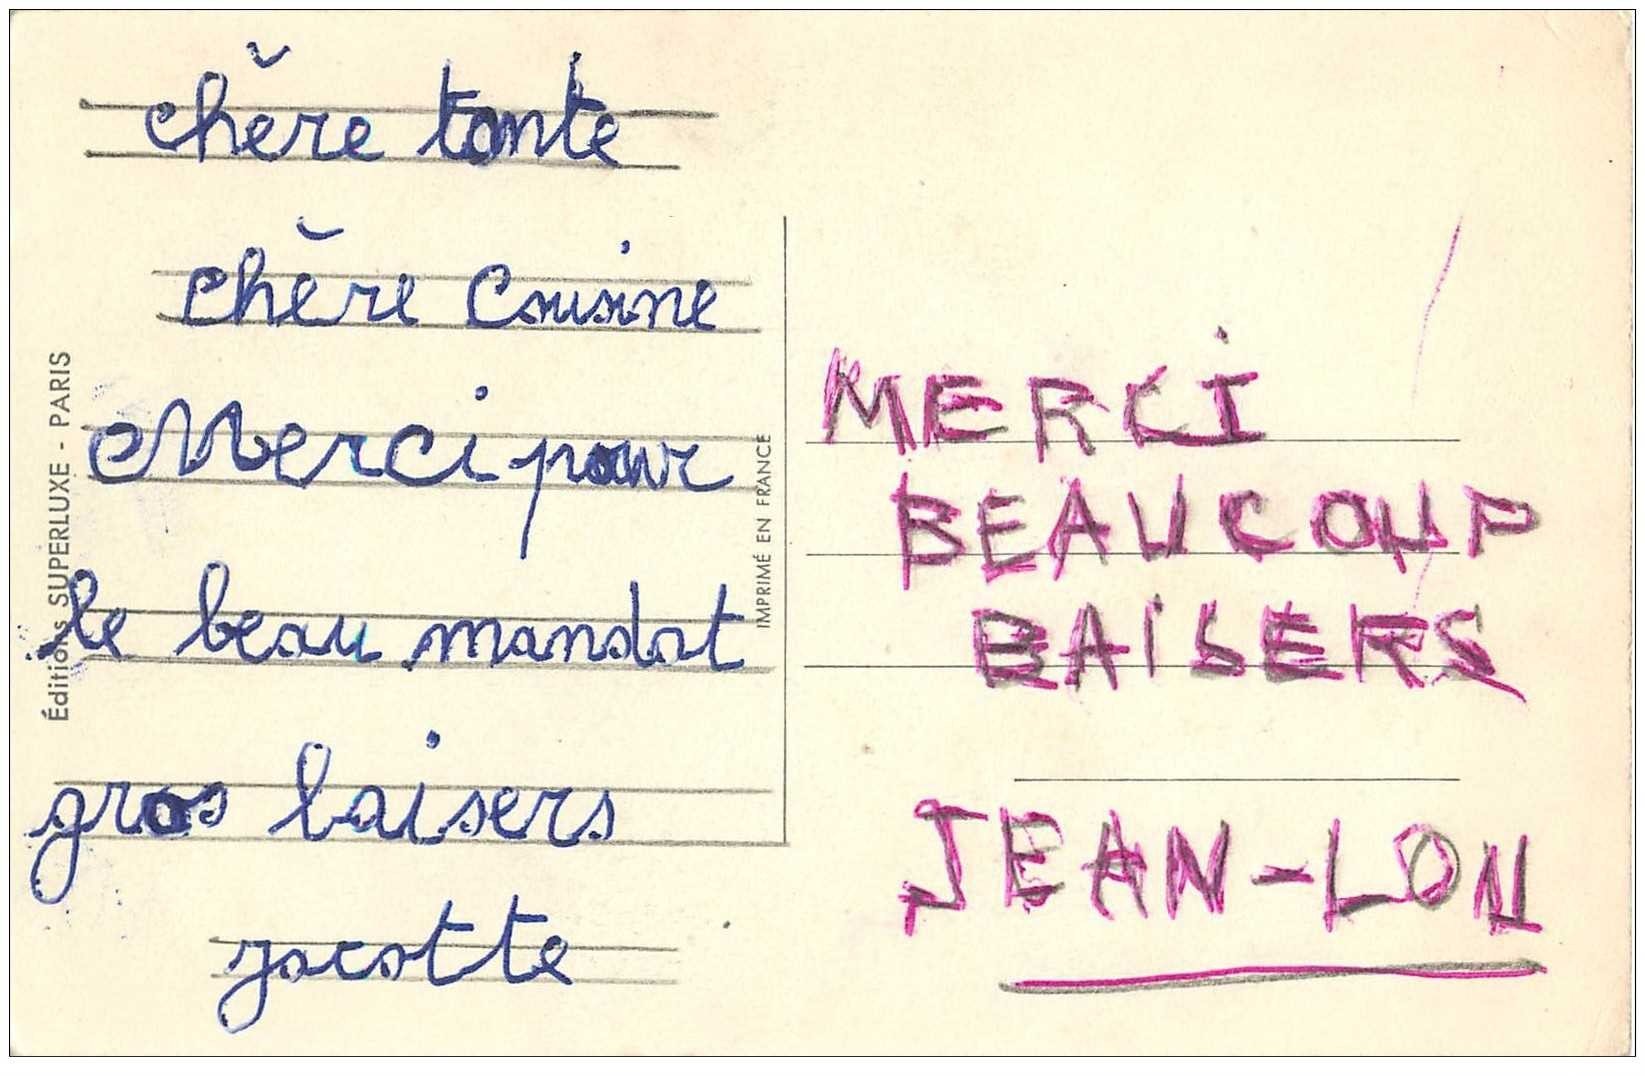 chère tante
chère Cousine
Merci pour
le beau mandat
gros baisers
jacotte
Éditions SUPERLUXE - PARIS
IMPRIMÉ EN FRANCE
MERCI
BEAUCOUP
BAISERS
JEAN-LOU